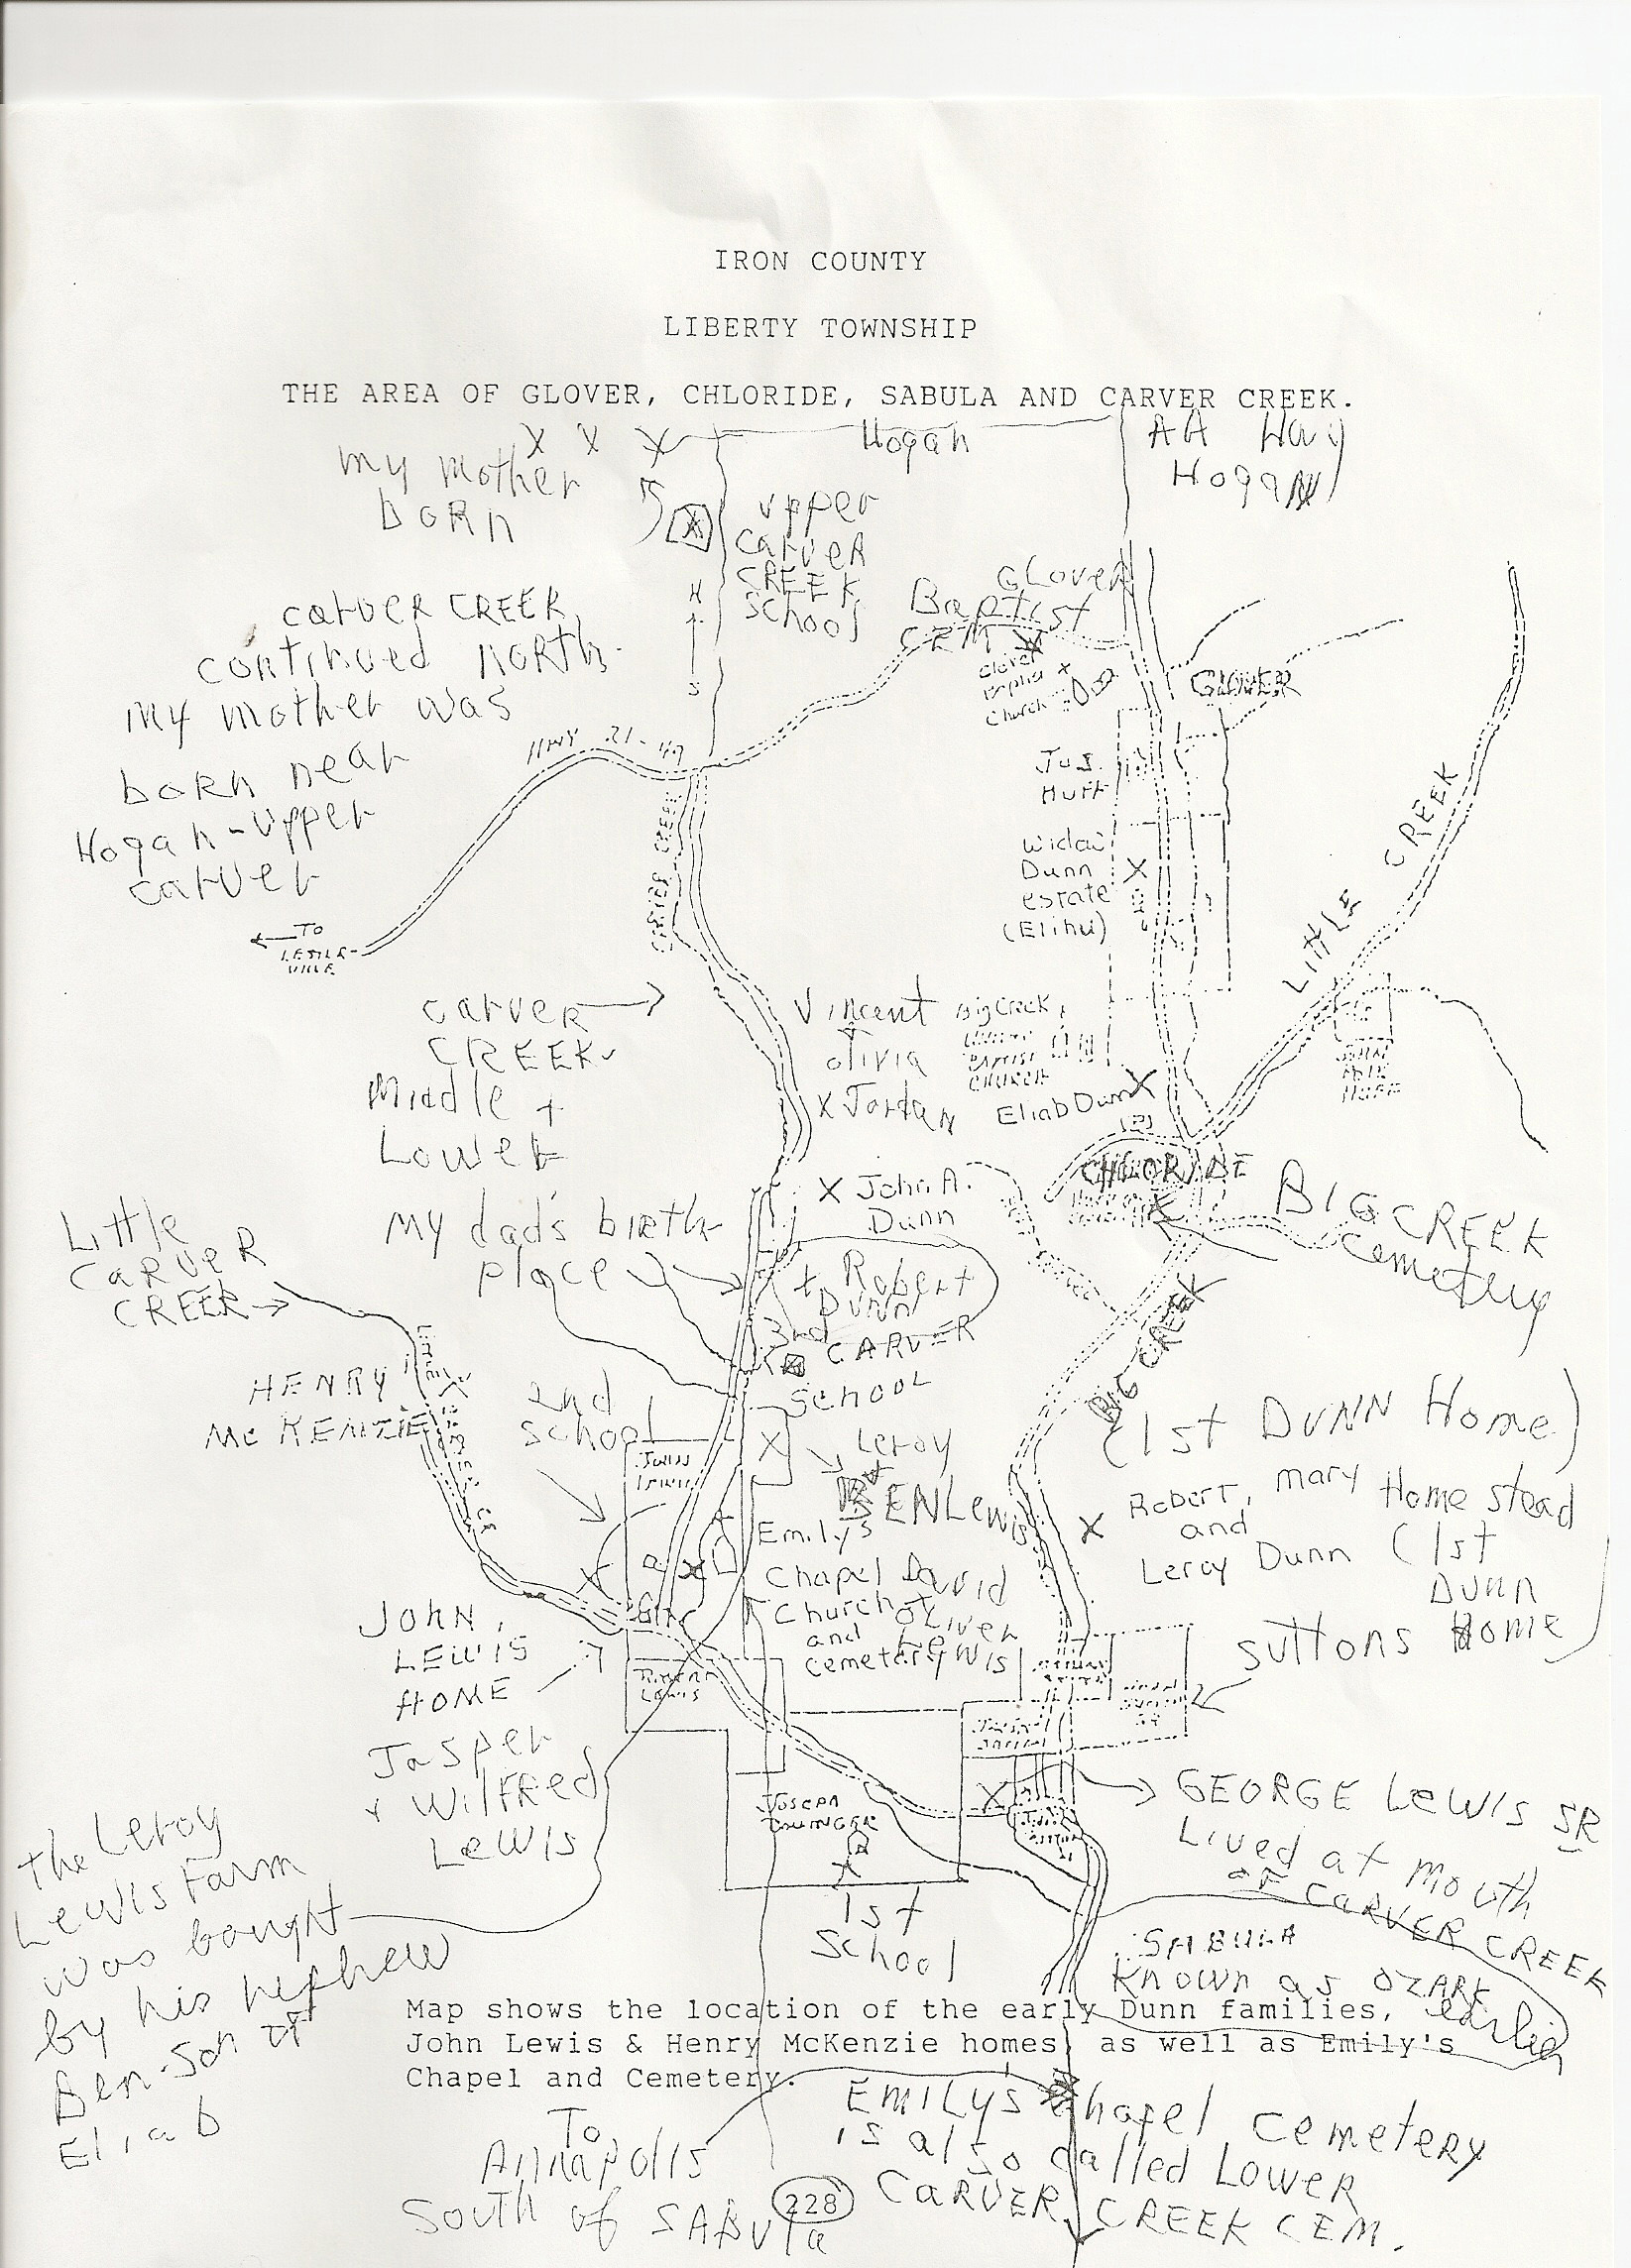 IRON COUNTY
LIBERTY TOWNSHIP
THE AREA OF GLOVER, CHLORIDE, SABULA AND CARVER CREEK.
X X X
Hogan
AA Hwy
Hogan
my mother
born
upper
carver
CREEK
School
N
S
carver CREEK
continued north.
my mother was
born near
Hogan-Upper
carver
Glover
Baptist
CEM
Glover
Church
GLOVER
HWY 21-49
CARVER CREEK
TO
LESTER-
VILLE
Jos.
Huff
Widow
Dunn
estate
(Elihu)
LITTLE CREEK
carver
CREEK
Middle +
Lower
Vincent
olivia
X Jordan
Big Creek
BAPTIST
CHURCH
Eliab Dunn X
HUFF
CHLORIDE
X John A.
Dunn
BIG CREEK
Cemetery
my dad's birth
place
Little
CARVER
CREEK
Robert
DUNN
3rd
CARVER
School
BIG CREEK
LITTLE CARVER CR
HENRY
McKENZIE
2nd
School
JOHN
LEWIS
X
Leroy
BEN Lewis
(1st DUNN Home)
X Robert, mary Home stead
and
Leroy Dunn (1st
Dunn
Home
Emily's
Chapel
Church
and
cemetery
David
Oliver
Lewis
suttons
JOHN
LEWIS
HOME
LEWIS
Jasper
+ Wilfred
Lewis
JOSEPH
X
1st
School
X
GEORGE LEWIS SR
Lived at mouth
of CARVER CREEK
The Leroy
Lewis Farm
was bought
by his nephew
Ben-Son of
Eliab
SABULA
Known as OZARK
earlier
Map shows the location of the early Dunn families,
John Lewis & Henry McKenzie homes, as well as Emily's
Chapel and Cemetery.
To
Annapolis
South of SABULA
228
EMILY'S Chapel Cemetery
is also called Lower
CARVER CREEK CEM.